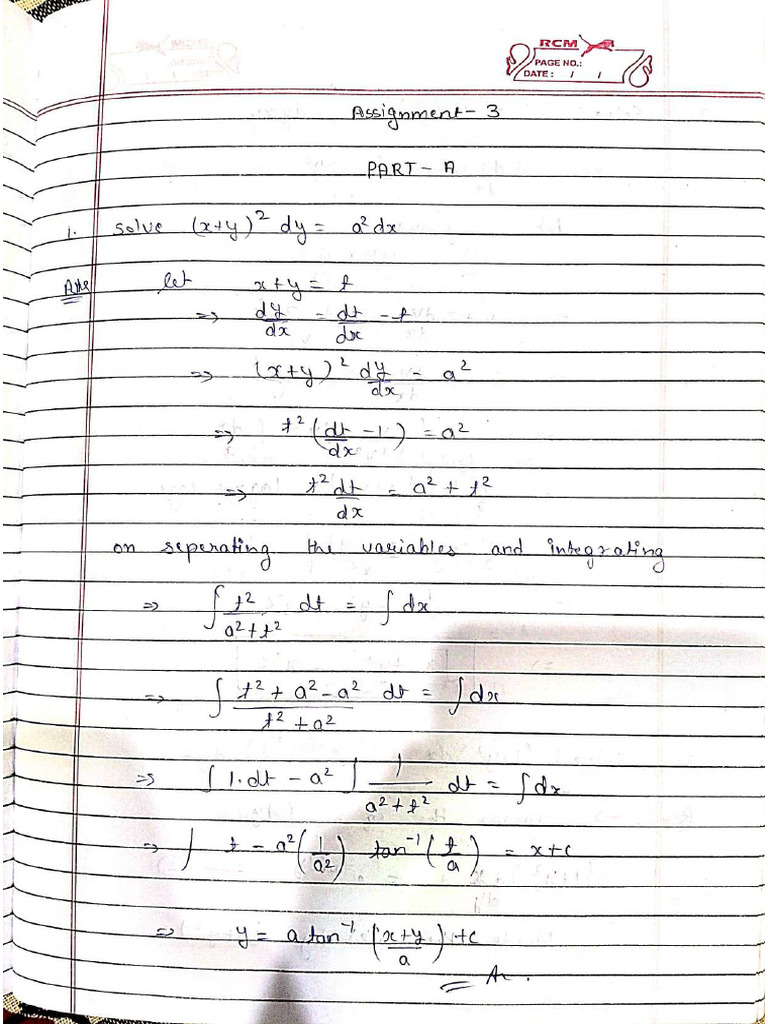 RCM
PAGE NO.:
DATE: / /
Assignment - 3
PART - A
1. solve (x+y)² dy = a² dx
Ans let x+y = t
=> dy/dx = dt/dx - t
=> (x+y)² dy/dx = a²
=> t² (dt/dx - 1) = a²
=> t² dt/dx = a² + t²
on seperating the variables and integrating
=> ∫ t²/(a²+t²) dt = ∫ dx
=> ∫ (t² + a² - a²)/(t² + a²) dt = ∫ dx
=> ∫ 1.dt - a² ∫ 1/(a²+t²) dt = ∫ dx
=> ∫ t - a² (1/a²) tan⁻¹ (t/a) = x+c
=> y = a tan⁻¹ ((x+y)/a) + c